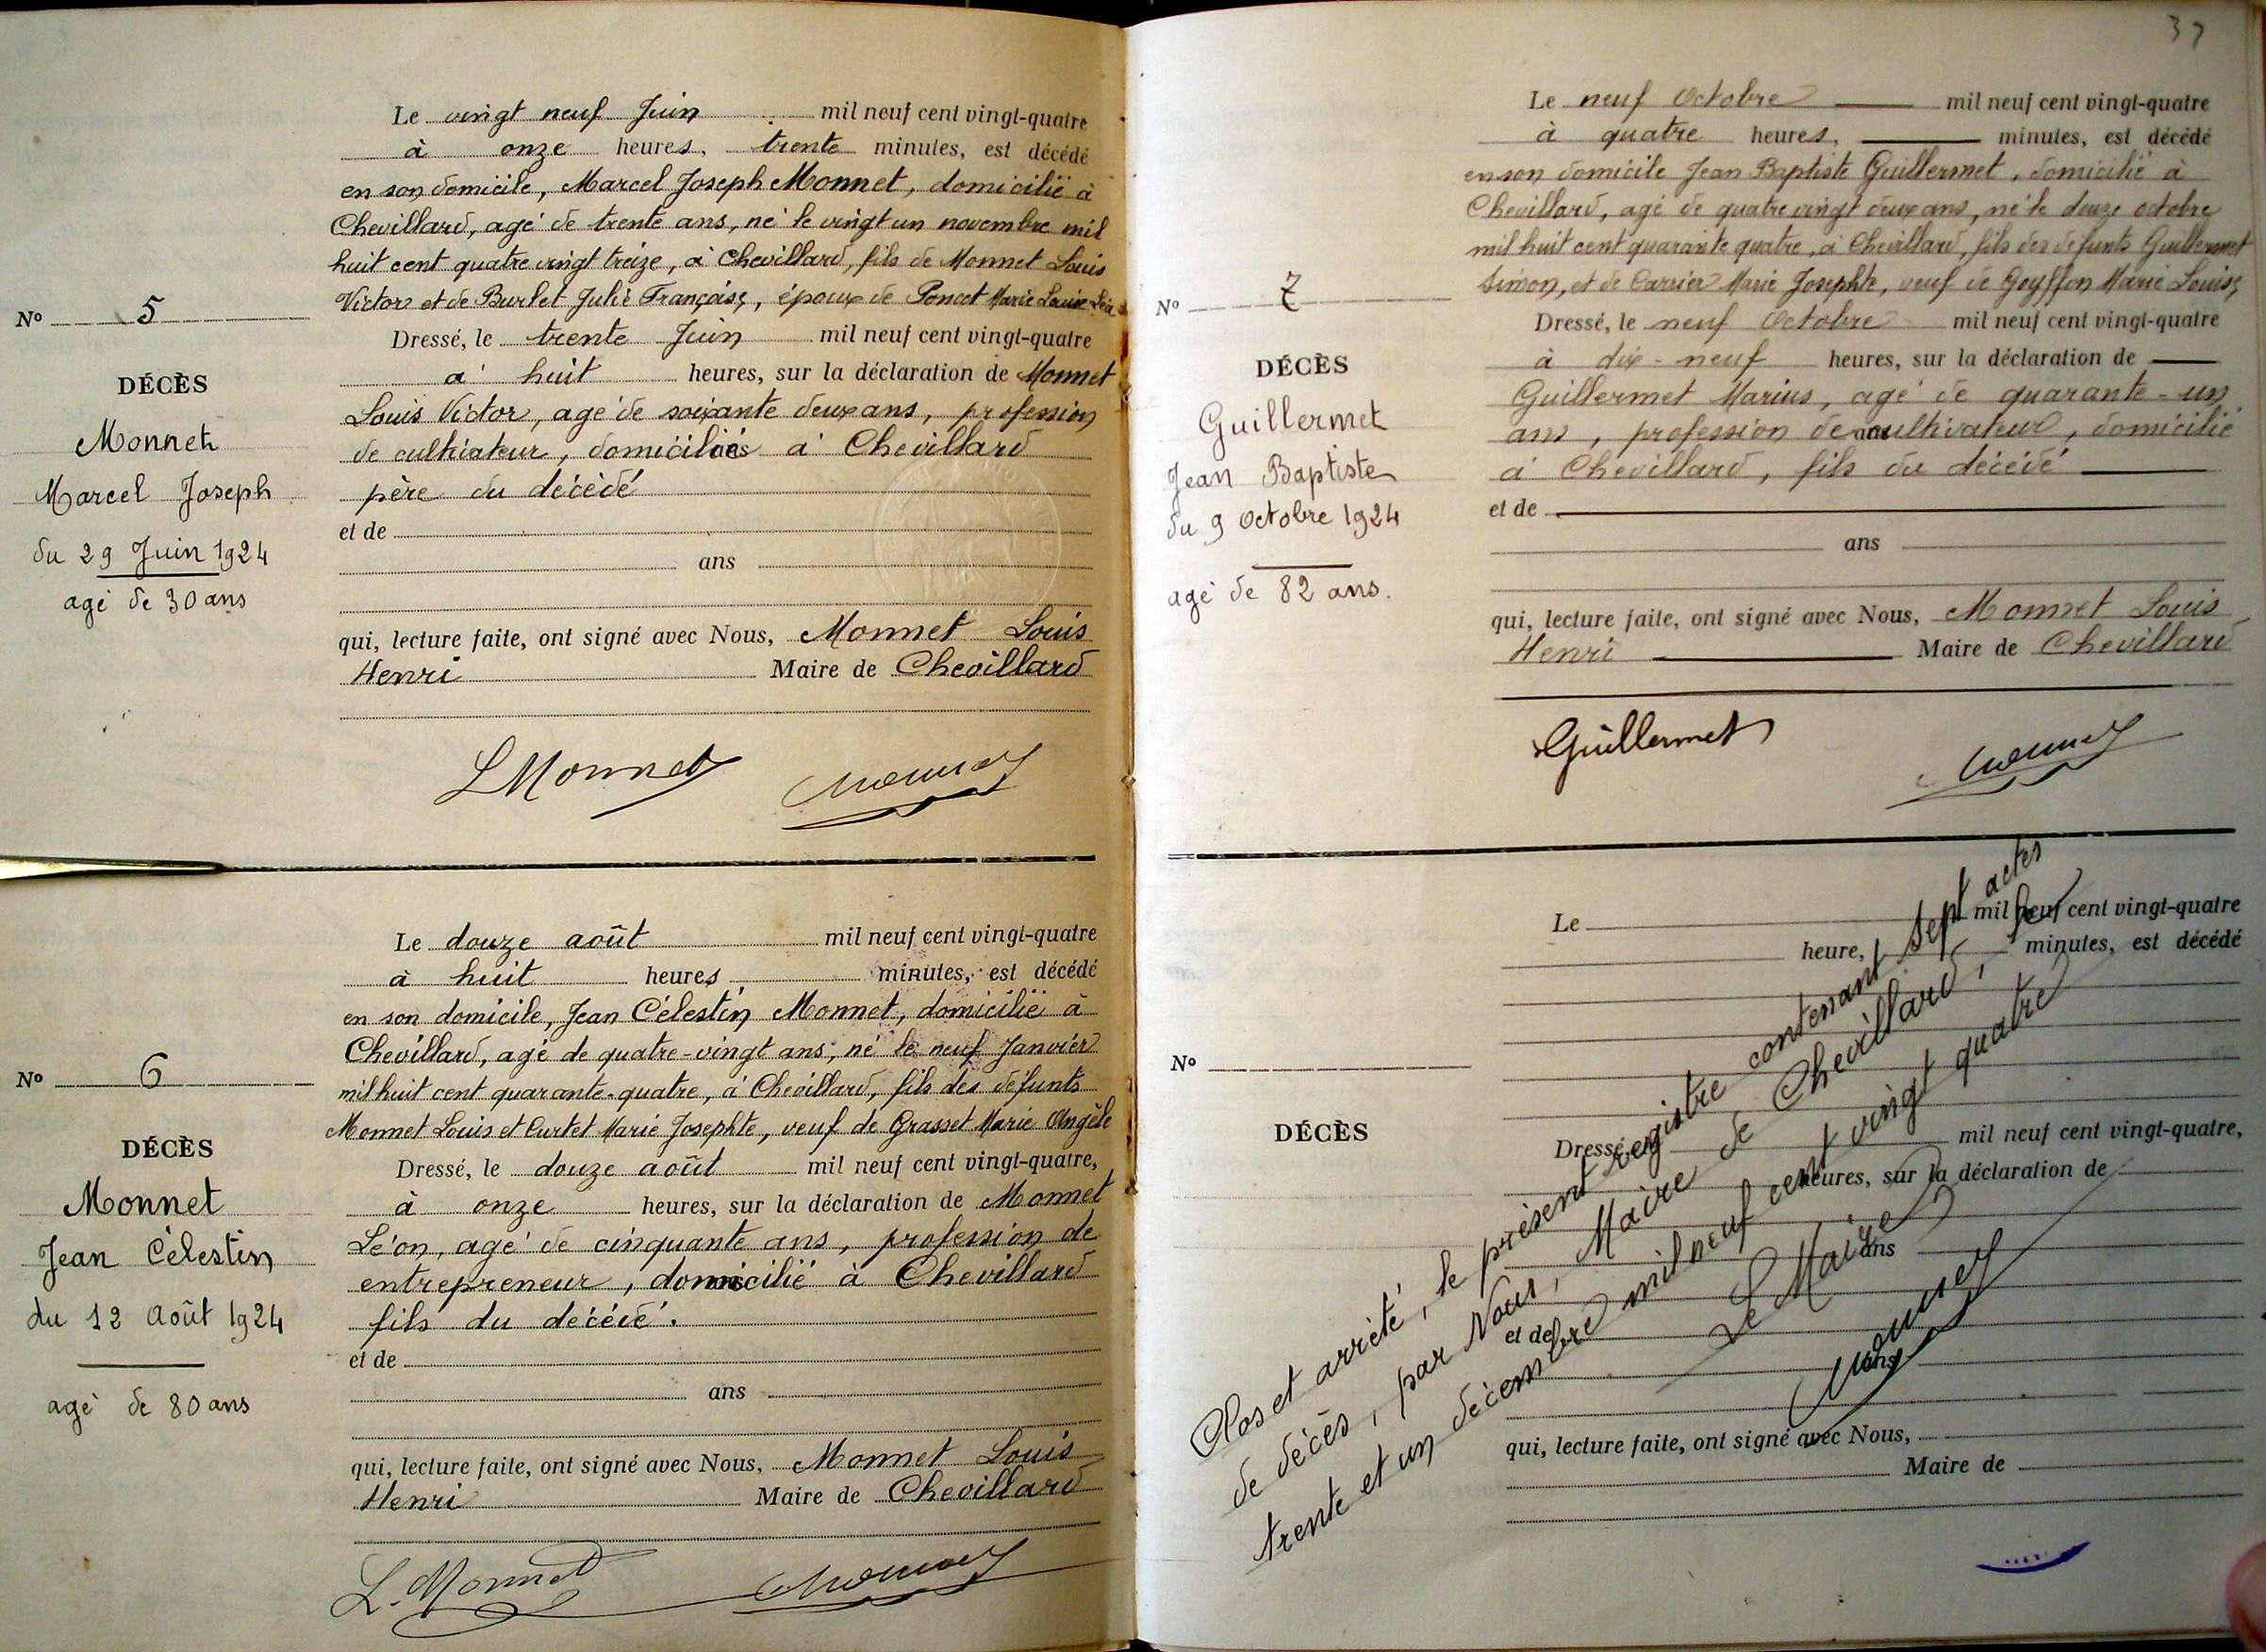 Le vingt neuf Juin mil neuf cent vingt-quatre
à onze heures, trente minutes, est décédé
en son domicile, Marcel Joseph Monnet, domicilié à
Chevillard, agé de trente ans, né le vingt un novembre mil
huit cent quatre vingt treize, à Chevillard, fils de Monnet Louis
Victor et de Burlet Julie Françoise, époux de Poncet Marie Louise Léa
No 5
Dressé, le trente Juin mil neuf cent vingt-quatre
DÉCÈS
à huit heures, sur la déclaration de Monnet
Louis Victor, agé de soixante deux ans, profession
Monnet
de cultivateur, domicilié à Chevillard
Marcel Joseph
père du décédé
du 29 Juin 1924
et de
ans
agé de 30 ans
qui, lecture faite, ont signé avec Nous, Monnet Louis
Henri Maire de Chevillard
LMonnet Monnet
Le douze août mil neuf cent vingt-quatre
à huit heures minutes, est décédé
en son domicile, Jean Célestin Monnet, domicilié à
Chevillard, agé de quatre-vingt ans, né le neuf Janvier
mil huit cent quarante-quatre, à Chevillard, fils des défunts
No 6
Monnet Louis et Curtet Marie Josephte, veuf de Grasset Marie Angèle
DÉCÈS
Dressé, le douze août mil neuf cent vingt-quatre,
Monnet
à onze heures, sur la déclaration de Monnet
Jean Célestin
Léon, agé de cinquante ans, profession de
entrepreneur, domicilié à Chevillard
du 12 Août 1924
fils du décédé.
et de
agé de 80 ans
ans
qui, lecture faite, ont signé avec Nous, Monnet Louis
Henri Maire de Chevillard
L. Monnet Monnet
37
Le neuf Octobre mil neuf cent vingt-quatre
à quatre heures, minutes, est décédé
en son domicile Jean Baptiste Guillermet, domicilié à
Chevillard, agé de quatre vingt deux ans, né le douze octobre
mil huit cent quarante quatre, à Chevillard, fils des défunts Guillermet
Simon, et de Carrier Marie Josephte, veuf de Goyffon Marie Louise
No 7
Dressé, le neuf Octobre mil neuf cent vingt-quatre
DÉCÈS
à dix-neuf heures, sur la déclaration de
Guillermet
Guillermet Marius, agé de quarante-un
ans, profession de cultivateur, domicilié
Jean Baptiste
à Chevillard, fils du décédé
du 9 Octobre 1924
et de
ans
agé de 82 ans.
qui, lecture faite, ont signé avec Nous, Monnet Louis
Henri Maire de Chevillard
Guillermet Monnet
Le mil neuf cent vingt-quatre
heure, minutes, est décédé
No
DÉCÈS
Dressé, le mil neuf cent vingt-quatre,
heures, sur la déclaration de
ans
et de
ans
qui, lecture faite, ont signé avec Nous,
Maire de
Clos et arrêté, le présent registre contenant sept actes
de décès, par Nous, Maire de Chevillard, le
trente et un décembre mil neuf cent vingt quatre
Le Maire
Monnet